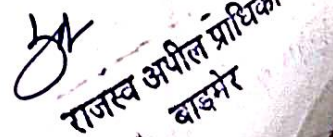 राजस्व अपील प्राधिका
बाड़मेर